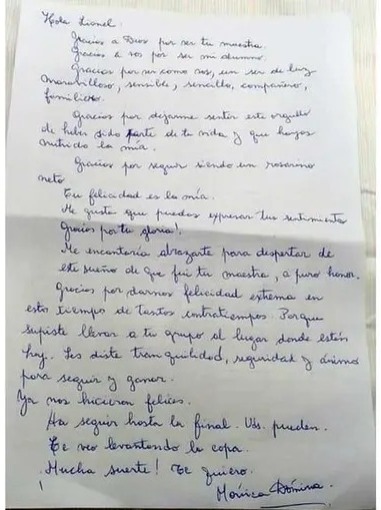 Hola Lionel.
Gracias a Dios por ser tu maestra.
Gracias a vos por ser mi alumno.
Gracias por ser como sos, un ser de luz
maravilloso, sensible, sencillo, compañero,
familiero.
Gracias por dejarme sentir este orgullo
de haber sido parte de tu vida y que hayas
nutrido la mía.
Gracias por seguir siendo un rosarino
neto
Tu felicidad es la mía.
Me gusta que puedas expresar tus sentimientos
Gracias por tu gloria!.
Me encantaría abrazarte para despertar de
este sueño de que fui tu maestra, a puro honor.
Gracias por darnos felicidad extrema en
este tiempo de tantos contratiempos. Porque
supiste llevar a tu grupo al lugar donde están
hoy. Les diste tranquilidad, seguridad y ánimo
para seguir y ganar.
Ya nos hicieron felices.
Ha seguir hasta la final. Uds. pueden.
Te veo levantando la copa.
Mucha suerte! Te quiero.
Mónica Dómina